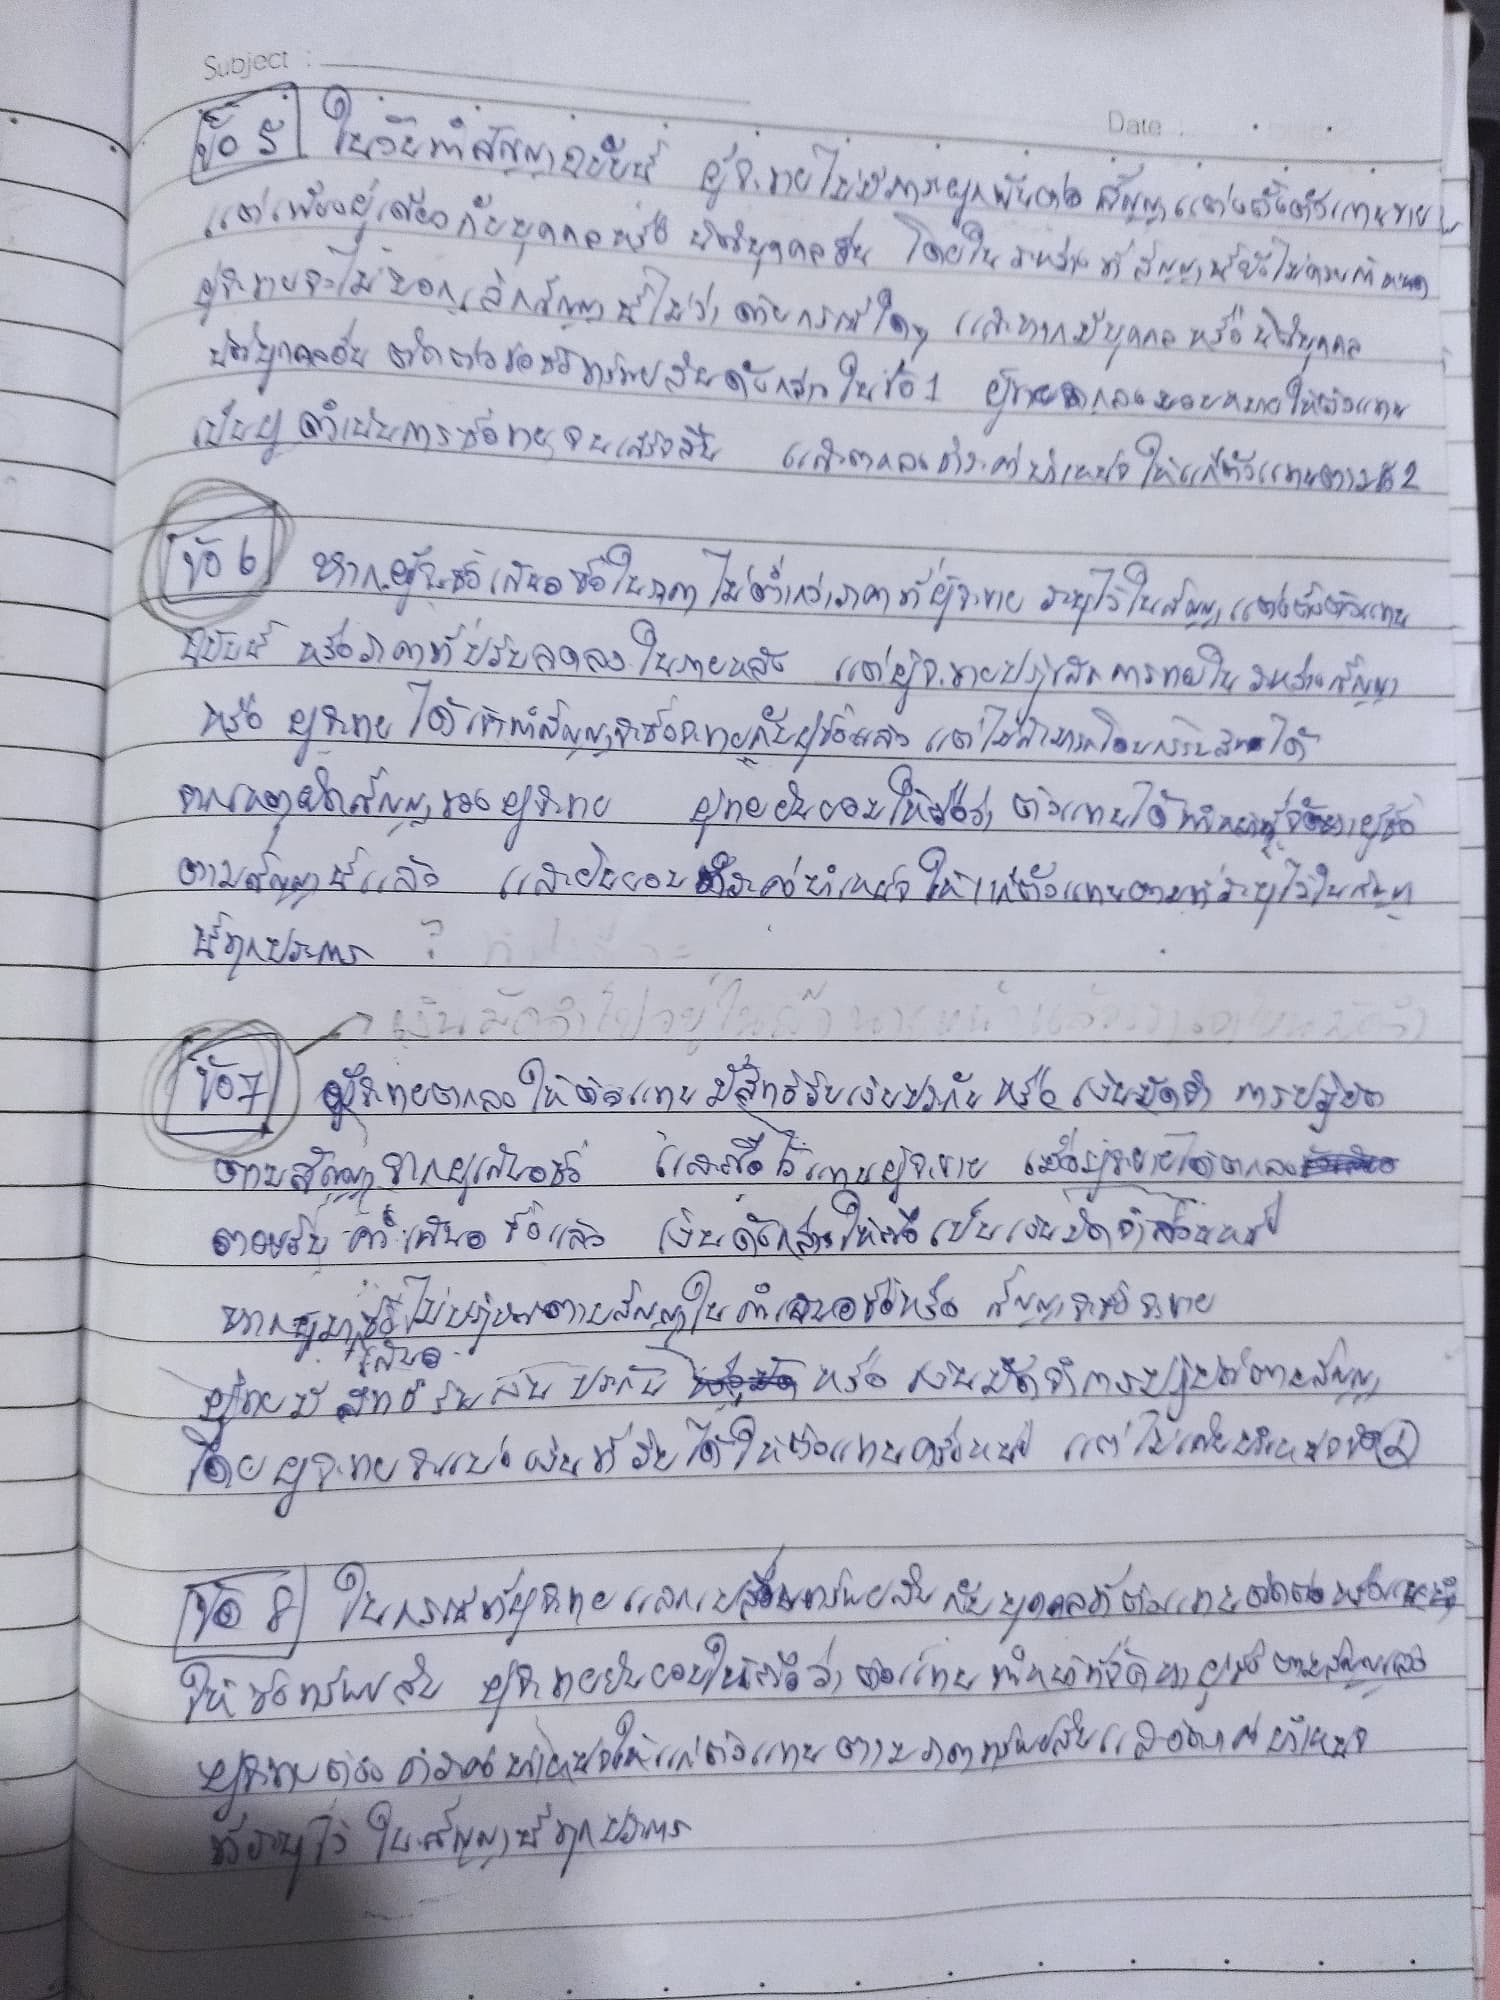 Subject :
Date :
ข้อ 5 ในวันทำสัญญาฉบับนี้ ผู้จะขายไม่มีภาระผูกพันต่อ สัญญาแต่งตั้งตัวแทนขาย
แต่เพียงผู้เดียว กับบุคคลหรือ นิติบุคคลอื่น โดยใน ระหว่างที่สัญญานี้ยังไม่ครบกำหนด
ผู้จะขายจะไม่บอกเลิกสัญญานี้ไม่ว่า ด้วยกรณีใดๆ และหากมีบุคคล หรือ นิติบุคคล
นิติบุคคลอื่น ติดต่อขอซื้อทรัพย์สินดังกล่าวในข้อ 1 ผู้ขายตกลงมอบหมายให้ตัวแทน
เป็นผู้ดำเนินการซื้อขายจนเสร็จสิ้น และตกลงชำระค่าบำเหน็จ ให้แก่ตัวแทนตามข้อ 2
ข้อ 6 หากผู้จะซื้อเสนอซื้อในราคา ไม่ต่ำกว่าราคาที่ผู้จะขาย ระบุไว้ในสัญญาแต่งตั้งตัวแทน
ฉบับนี้ หรือราคาที่ปรับลดลงในภายหลัง แต่ผู้จะขายปฏิเสธการขายใน ระหว่างสัญญา
หรือ ผู้จะขาย ได้เข้าทำสัญญาจะซื้อจะขายกับผู้ซื้อแล้ว แต่ไม่สามารถโอนกรรมสิทธิ์ได้
จากเหตุผิดสัญญาของผู้จะขาย ผู้ขายยินยอมให้ถือว่า ตัวแทนได้ทำหน้าที่จัดหาผู้ซื้อ
ตามสัญญานี้แล้ว และยินยอมชำระค่าบำเหน็จ ให้แก่ตัวแทนตามที่ระบุไว้ในสัญญา
นี้ทุกประการ ?
เงินมัดจำไปอยู่ในมือนายหน้าแล้ว
ข้อ 7 ผู้จะขายตกลงให้ตัวแทน มีสิทธิรับเงินประกัน หรือ เงินมัดจำ การปฏิบัติ
ตามสัญญา จากผู้เสนอซื้อ และถือไว้แทนผู้จะขาย เมื่อผู้จะขายได้ตกลง
ตอบรับ คำเสนอ ซื้อแล้ว เงินดังกล่าวให้ถือเป็นเงินมัดจำส่วนหนึ่ง
หากผู้เสนอซื้อไม่ปฏิบัติตามสัญญาใน คำเสนอซื้อหรือ สัญญาจะซื้อจะขาย
ผู้ขายมี สิทธิรับเงิน ประกัน หรือ เงินมัดจำการปฏิบัติตามสัญญา
โดยผู้จะขายจะแบ่งเงินที่รับได้ให้ตัวแทนครึ่งหนึ่ง แต่ไม่เกินบำเหน็จข้อ 2
ข้อ 8 ในกรณีที่ผู้จะขายแลกเปลี่ยนทรัพย์สิน กับบุคคลที่ตัวแทนติดต่อ หรือแนะนำ
ให้ ซื้อทรัพย์สิน ผู้จะขายยินยอมให้ถือว่า ตัวแทน ทำหน้าที่จัดหาผู้ซื้อ ตามสัญญาแล้ว
ผู้จะขายต้อง ชำระค่าบำเหน็จให้แก่ตัวแทน ตามราคาทรัพย์สินและอัตราค่าบำเหน็จ
ที่ระบุไว้ ในสัญญานี้ทุกประการ